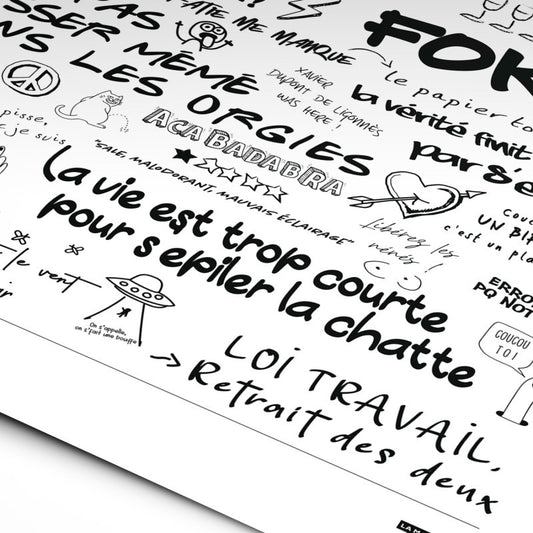 PAS
ME MANQUE
SSER MÉMÉ
LES ORGIES
FOK
le papier
XAVIER
DUPONT DE LIGONNÈS
WAS HERE !
la vérité finit
par s'e
pisse,
je suis
ACABADABRA
"SALE, MALODORANT, MAUVAIS ÉCLAIRAGE"
Libérez les
nénés !
COUCO
UN BI
c'est un pla
La vie est trop courte
pour s'epiler la chatte
le vent
On s'appelle,
on s'fait une bouffe
ERRO
PQ NOT
COUCOU
TOI
-> LOI TRAVAIL,
Retrait des deux
LA M